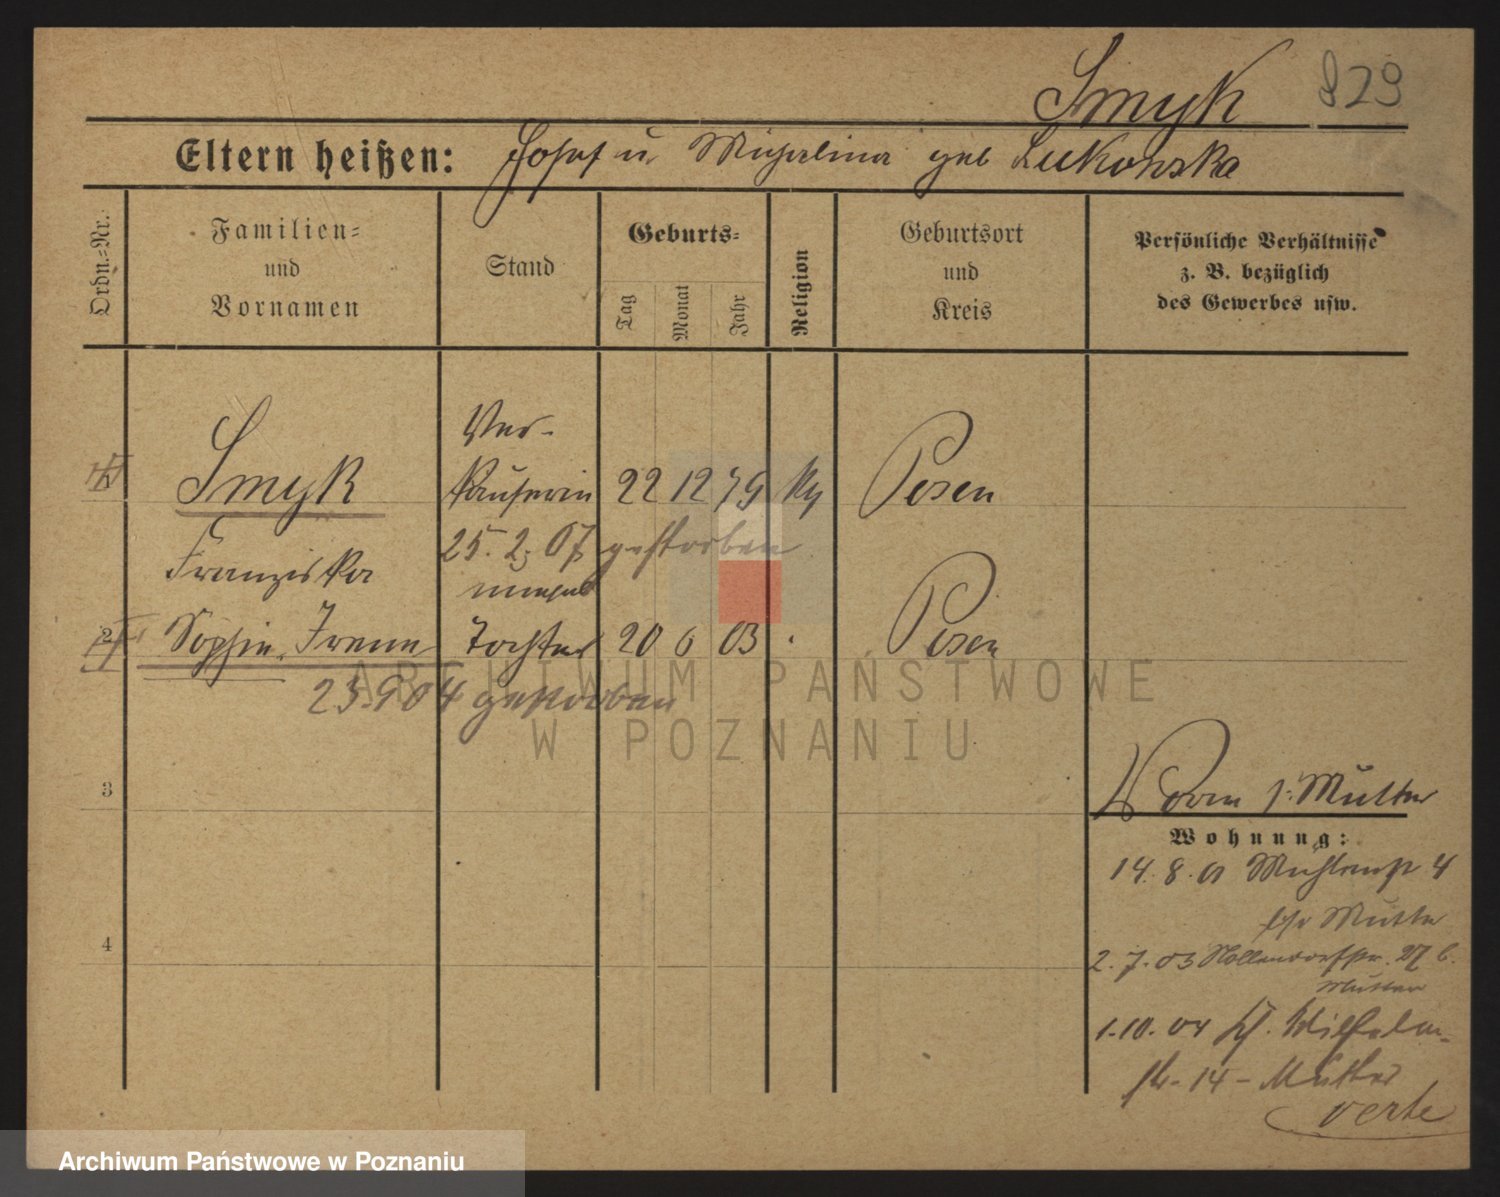 Smyk 829
Eltern heißen: Josef u. Michalina geb Lukowska
Ordn.-Nr.
Familien-
und
Vornamen
Stand
Geburts-
Tag
Monat
Jahr
Religion
Geburtsort
und
Kreis
Persönliche Verhältnisse
z. B. bezüglich
des Gewerbes usw.
Ver-
Smyk käuferin 22 12 79 Posen
25. 2. 07 gestorben
Franziska
2 Sophie Irene Tochter 20 6 03 Posen
23 9 04 gestorben
3
4
Mutter
Wohnung:
14. 8. 01 Mühlenstr 4
Mutter
2. 7. 03 Nollendorfstr. 27 b.
Mutter
1. 10. 04 St. Wilhelm-
str. 14 - Mutter
verte
ARCHIWUM PAŃSTWOWE
W POZNANIU
Archiwum Państwowe w Poznaniu